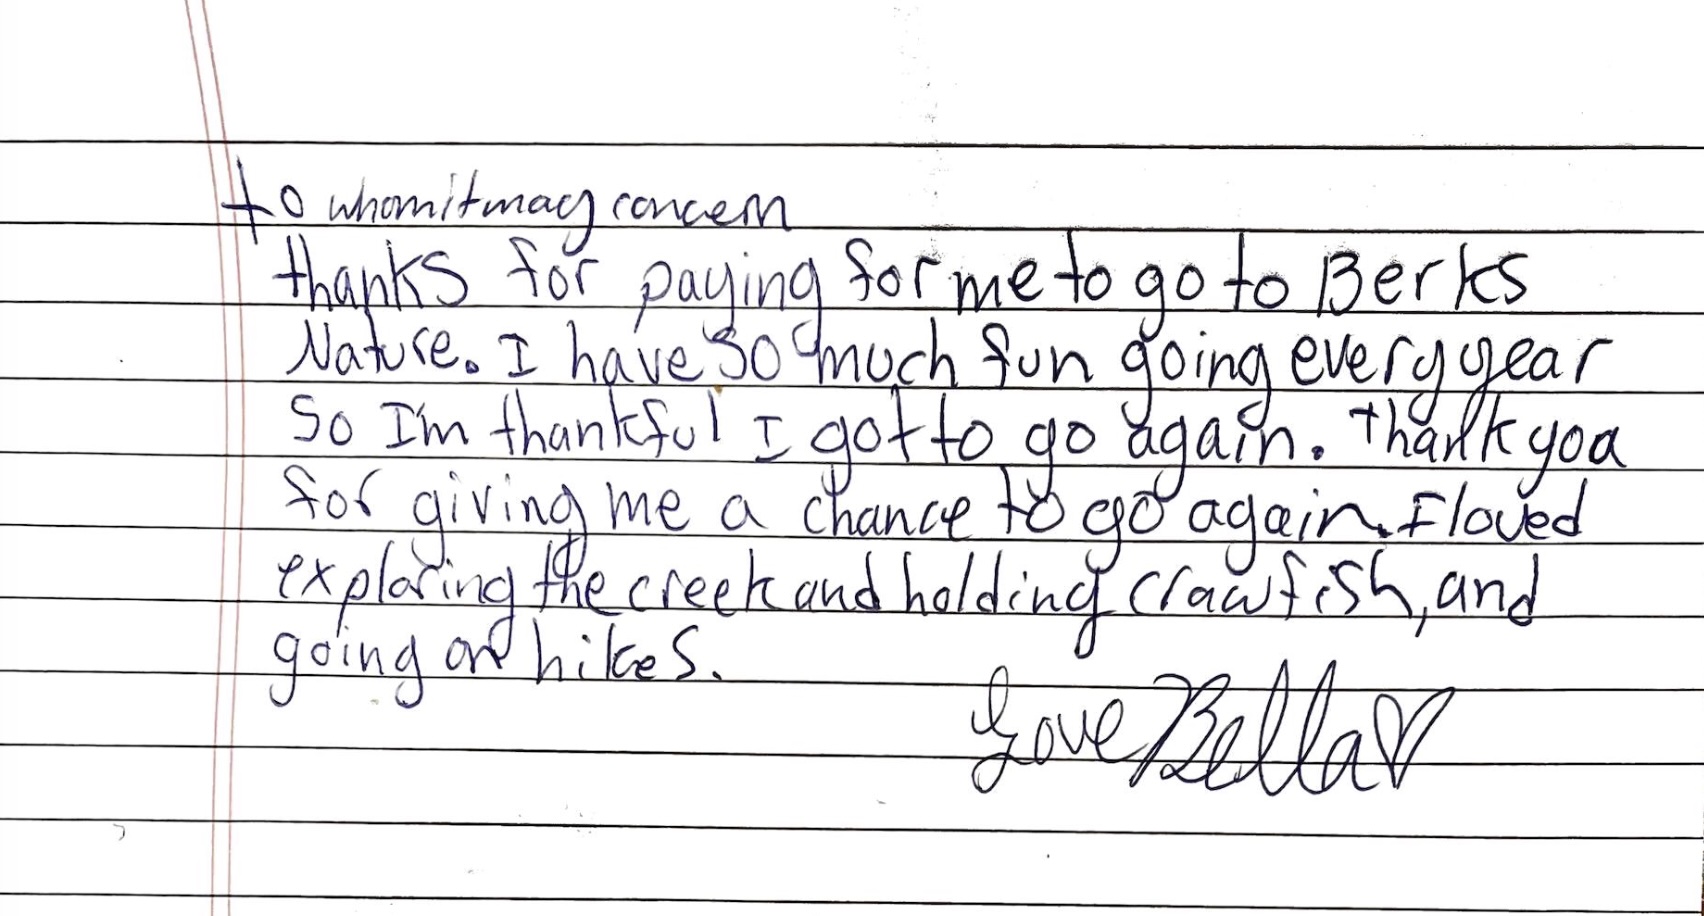 to whom it may concern
thanks for paying for me to go to Berks
Nature. I have so much fun going every year
So I'm thankful I got to go again. Thank you
for giving me a chance to go again. I loved
exploring the creek and holding crawfish, and
going on hikes.
Love Bella♡